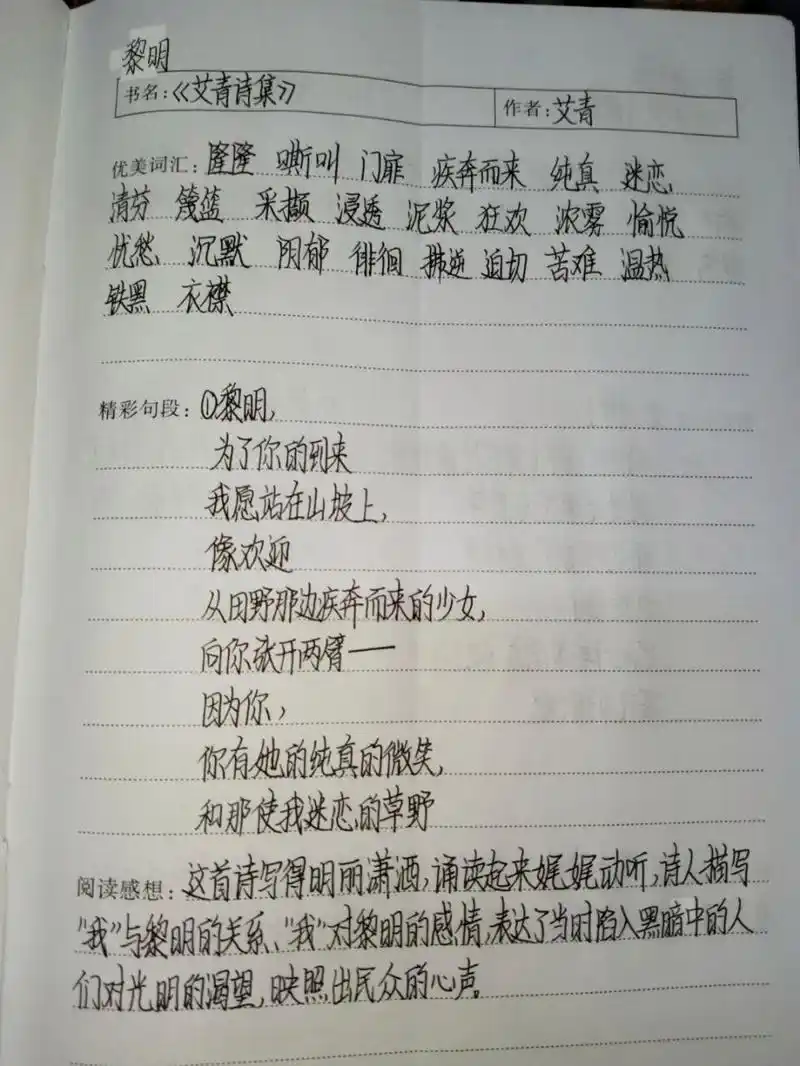 黎明
书名：《艾青诗集》 作者：艾青
优美词汇：隆隆 嘶叫 门扉 疾奔而来 纯真 迷恋
清芬 篾篮 采撷 浸透 泥浆 狂欢 浓雾 愉悦
忧愁 沉默 阴郁 徘徊 拂逆 迫切 苦难 温热
铁黑 衣襟
精彩句段：①黎明，
为了你的到来
我愿站在山坡上，
像欢迎
从田野那边疾奔而来的少女，
向你张开两臂——
因为你，
你有她的纯真的微笑，
和那使我迷恋的草野
阅读感想：这首诗写得明丽潇洒，诵读起来娓娓动听，诗人描写
“我”与黎明的关系、“我”对黎明的感情，表达了当时陷入黑暗中的人
们对光明的渴望，映照出民众的心声。